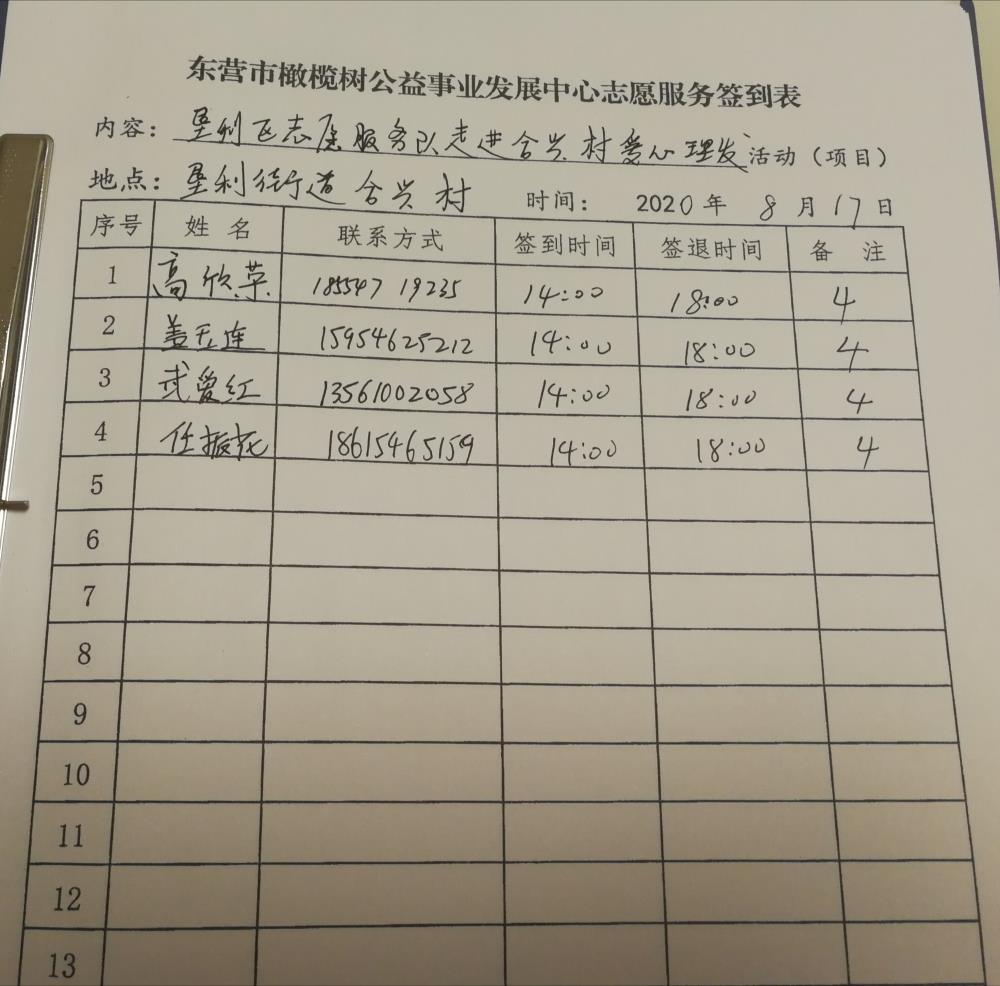 东营市橄榄树公益事业发展中心志愿服务签到表
内容：垦利区志愿服务队走进合兴村爱心理发活动（项目）
地点：垦利街道合兴村 时间： 2020年 8月17日
序号 姓名 联系方式 签到时间 签退时间 备注
1 高欣荣 18554719235 14:00 18:00 4
2 盖玉连 15954625212 14:00 18:00 4
3 武爱红 13561002058 14:00 18:00 4
4 任振花 18615465159 14:00 18:00 4
5
6
7
8
9
10
11
12
13